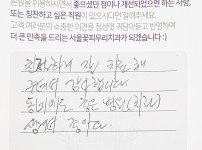 본원을 이용하시면서 좋으셨던 점이나 개선되었으면 하는 사항,
또는 칭찬하고 싶은 직원이 있으시다면 알려주세요.
고객 여러분의 소중한 의견을 정성껏 귀담아듣고 반영하여
더 큰 만족을 드리는 서울꽃피우리치과가 되겠습니다 :)
친절하게 잘 치료해
주셔서 감사합니다.
동네에도 좋은 병원(치과)
생겨서 좋아요.